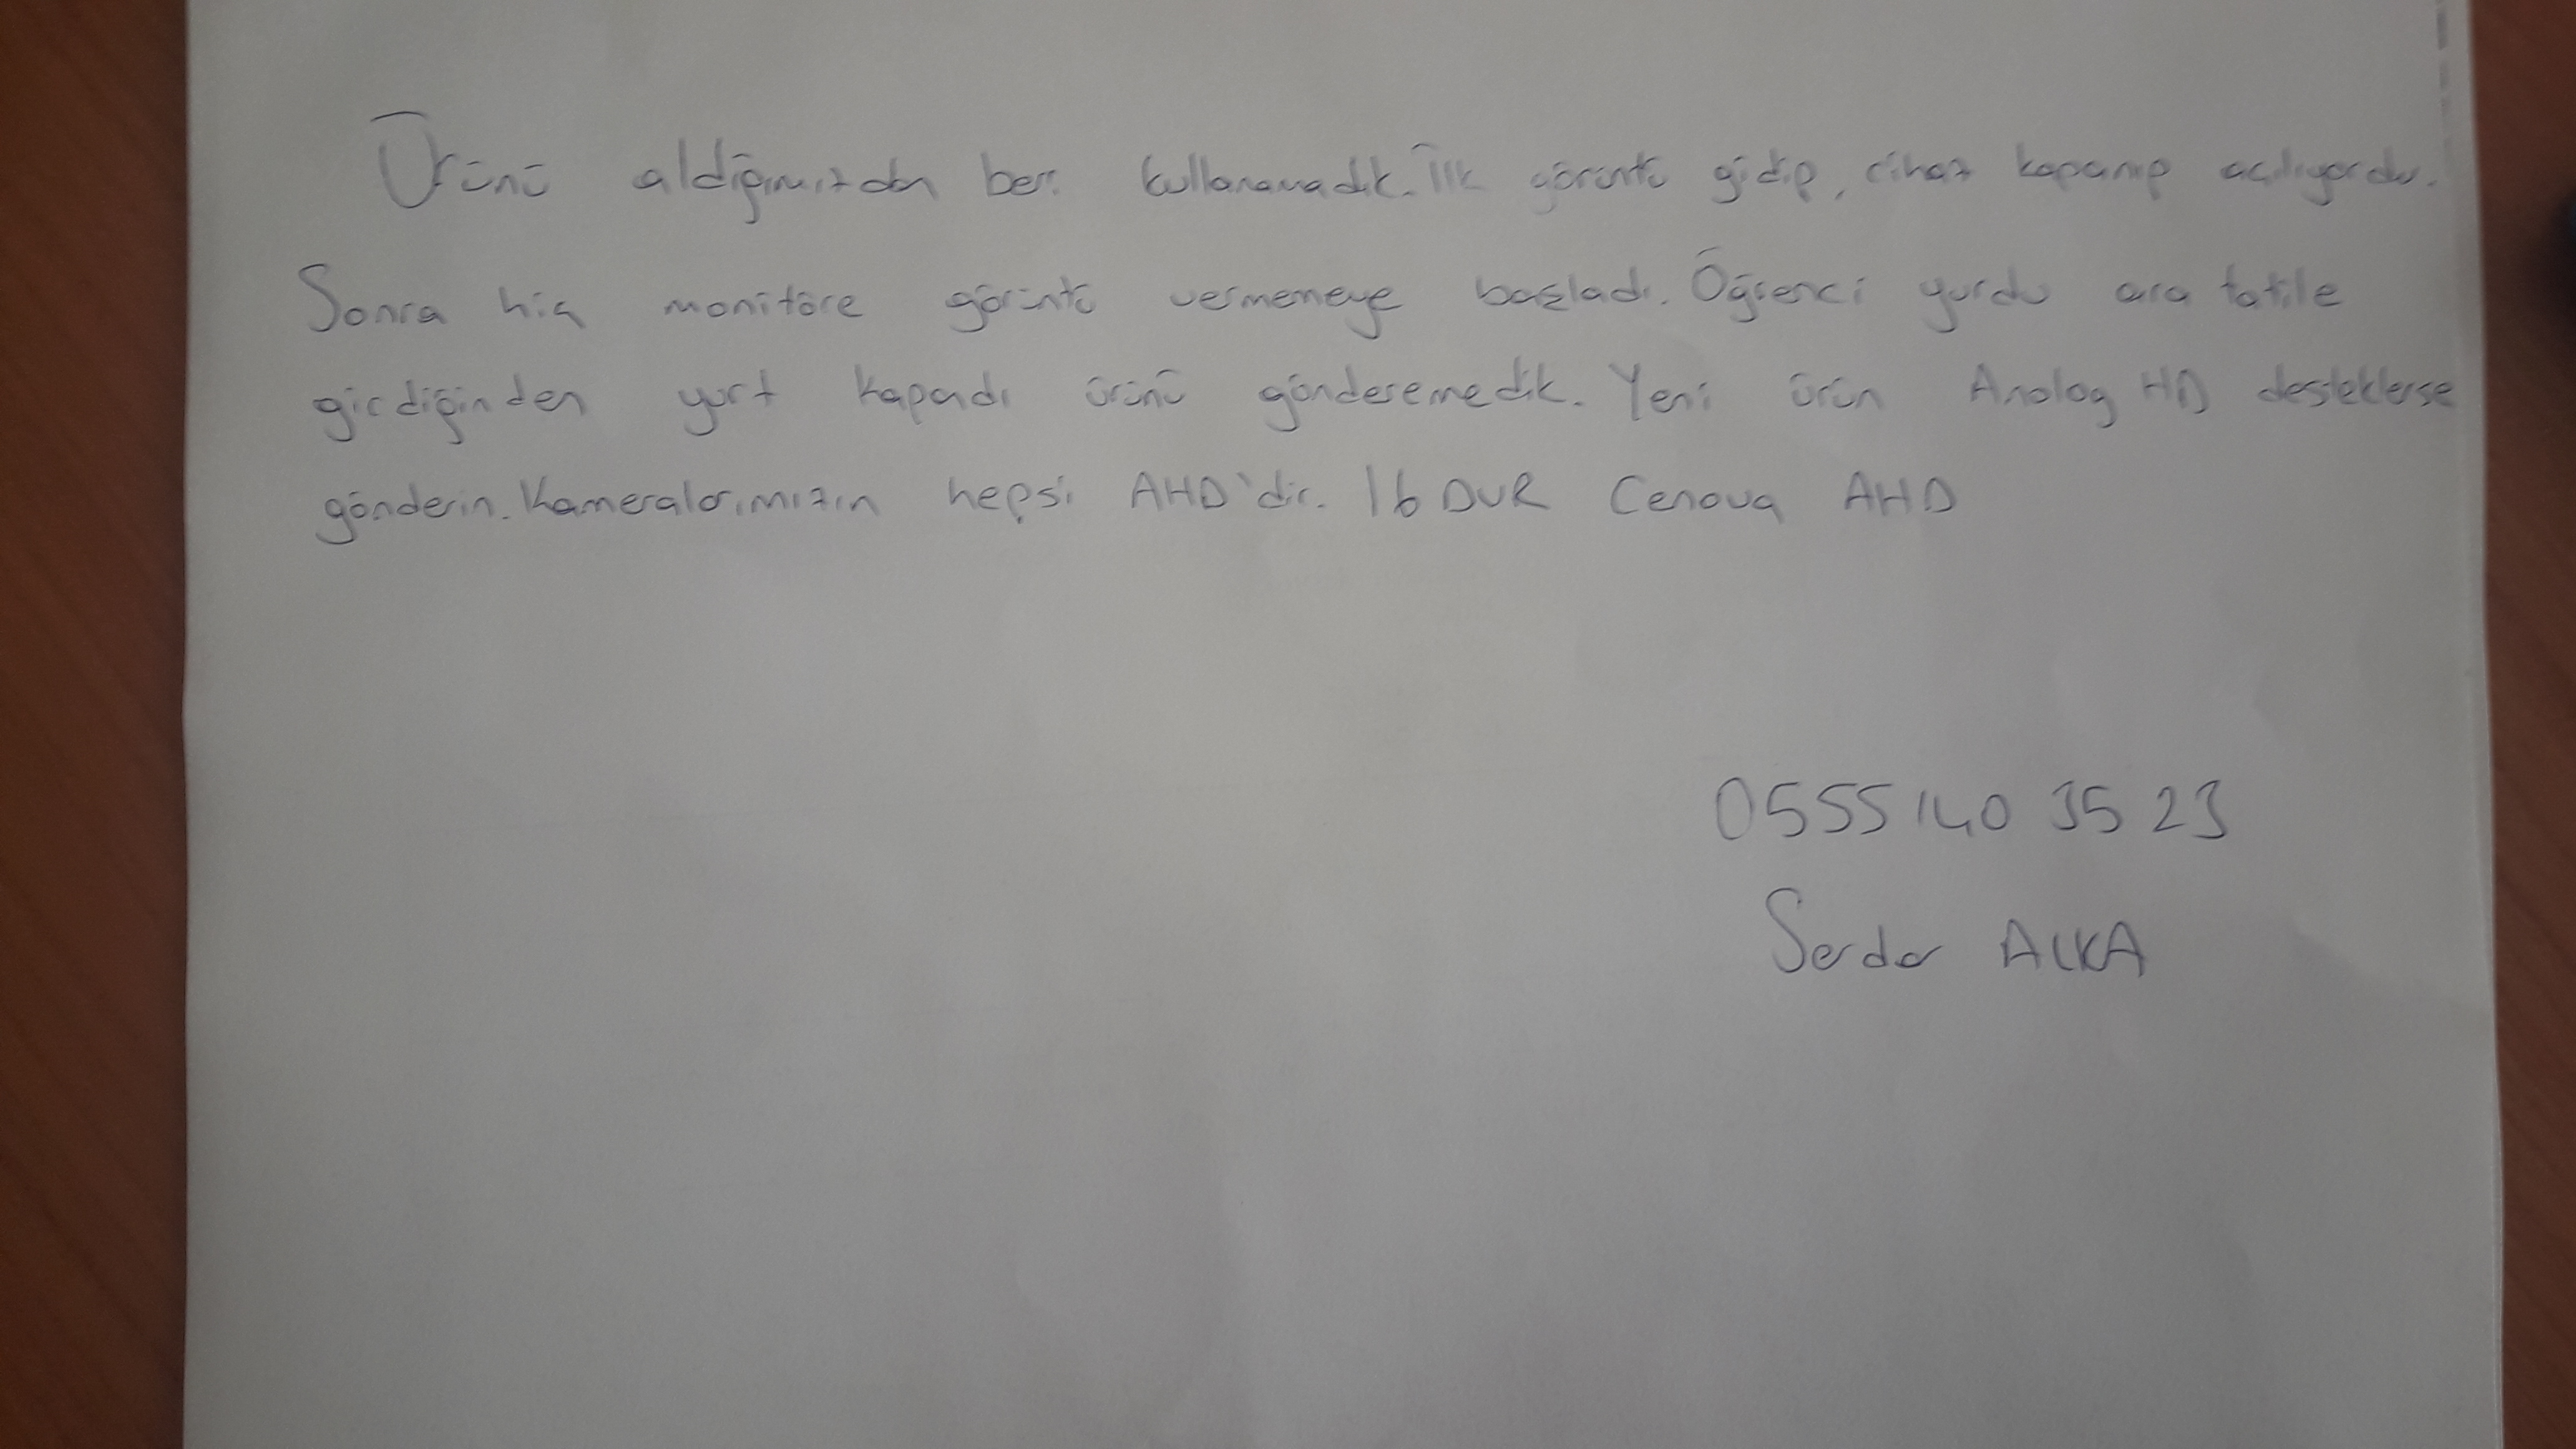 Ürünü aldığımızdan beri kullanamadık. İlk görüntü gidip, cihaz kapanıp açılıyordu.
Sonra hiç monitöre görüntü vermemeye başladı. Öğrenci yurdu ara tatile
girdiğinden yurt kapandı ürünü gönderemedik. Yeni ürün Analog HD desteklerse
gönderin. Kameralarımızın hepsi AHD'dir. 16 DVR Cenova AHD
0555 140 35 23
Serdar ALKA